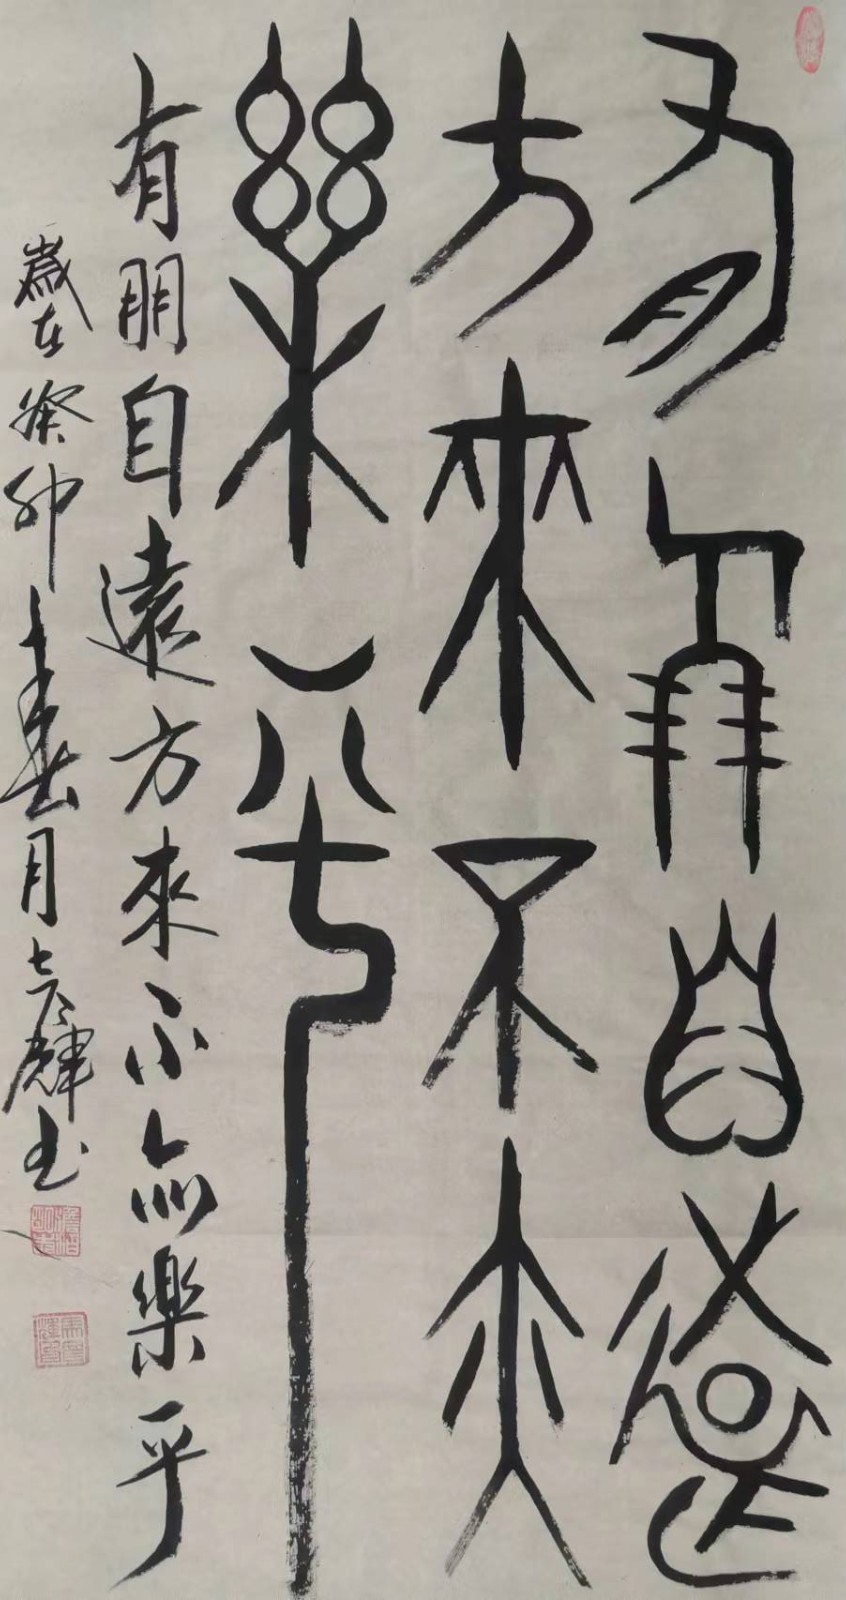 有朋自遠
方來不亦
樂乎
有朋自遠方來不亦樂乎
歲在癸卯春月
輝书